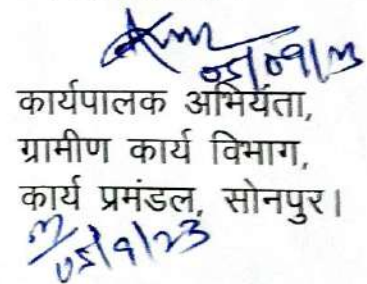 05/09/23
कार्यपालक अभियंता,
ग्रामीण कार्य विभाग,
कार्य प्रमंडल, सोनपुर।
05/9/23